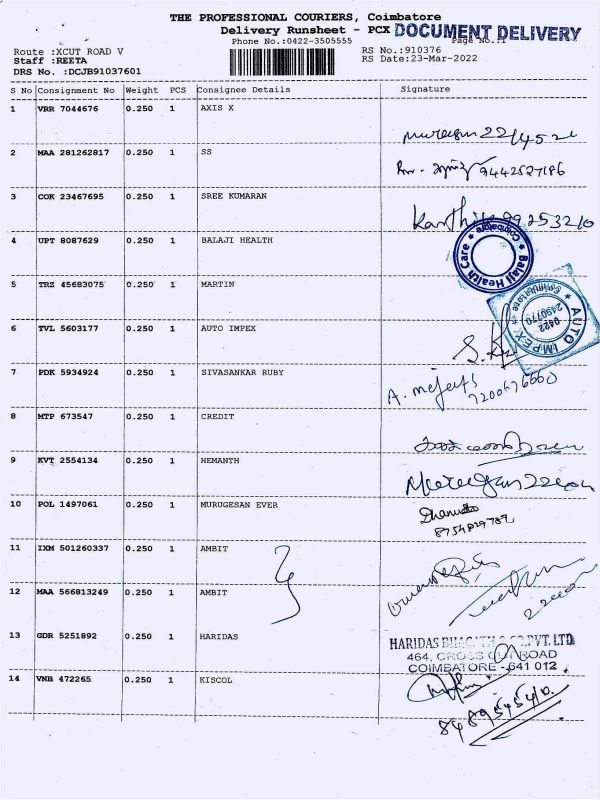 THE PROFESSIONAL COURIERS, Coimbatore
Delivery Runsheet - PCX DOCUMENT DELIVERY
Phone No.:0422-3505555 Page No.:1
Route :XCUT ROAD V RS No.:910376
Staff :REETA RS Date:23-Mar-2022
DRS No. :DCJB91037601
S No Consignment No Weight PCS Consignee Details Signature
1 VRR 7044676 0.250 1 AXIS X
2 MAA 281262817 0.250 1 SS
9442527186
3 COK 23467695 0.250 1 SREE KUMARAN
4 UPT 8087629 0.250 1 BALAJI HEALTH
Balaji Health Care
Coimbatore
5 TRZ 45683075 0.250 1 MARTIN
6 TVL 5603177 0.250 1 AUTO IMPEX
AUTO IMPEX
Coimbatore
0422
2490770
7 PDK 5934924 0.250 1 SIVASANKAR RUBY
8 MTP 673547 0.250 1 CREDIT
9 KVT 2554134 0.250 1 HEMANTH
10 POL 1497061 0.250 1 MURUGESAN EVER
11 IXM 501260337 0.250 1 AMBIT
12 MAA 566813249 0.250 1 AMBIT
13 GDR 5251892 0.250 1 HARIDAS
HARIDAS BHAGATH & CO.PVT.LTD
464, CROSS CUT ROAD
COIMBATORE - 641 012.
14 VNB 472265 0.250 1 KISCOL